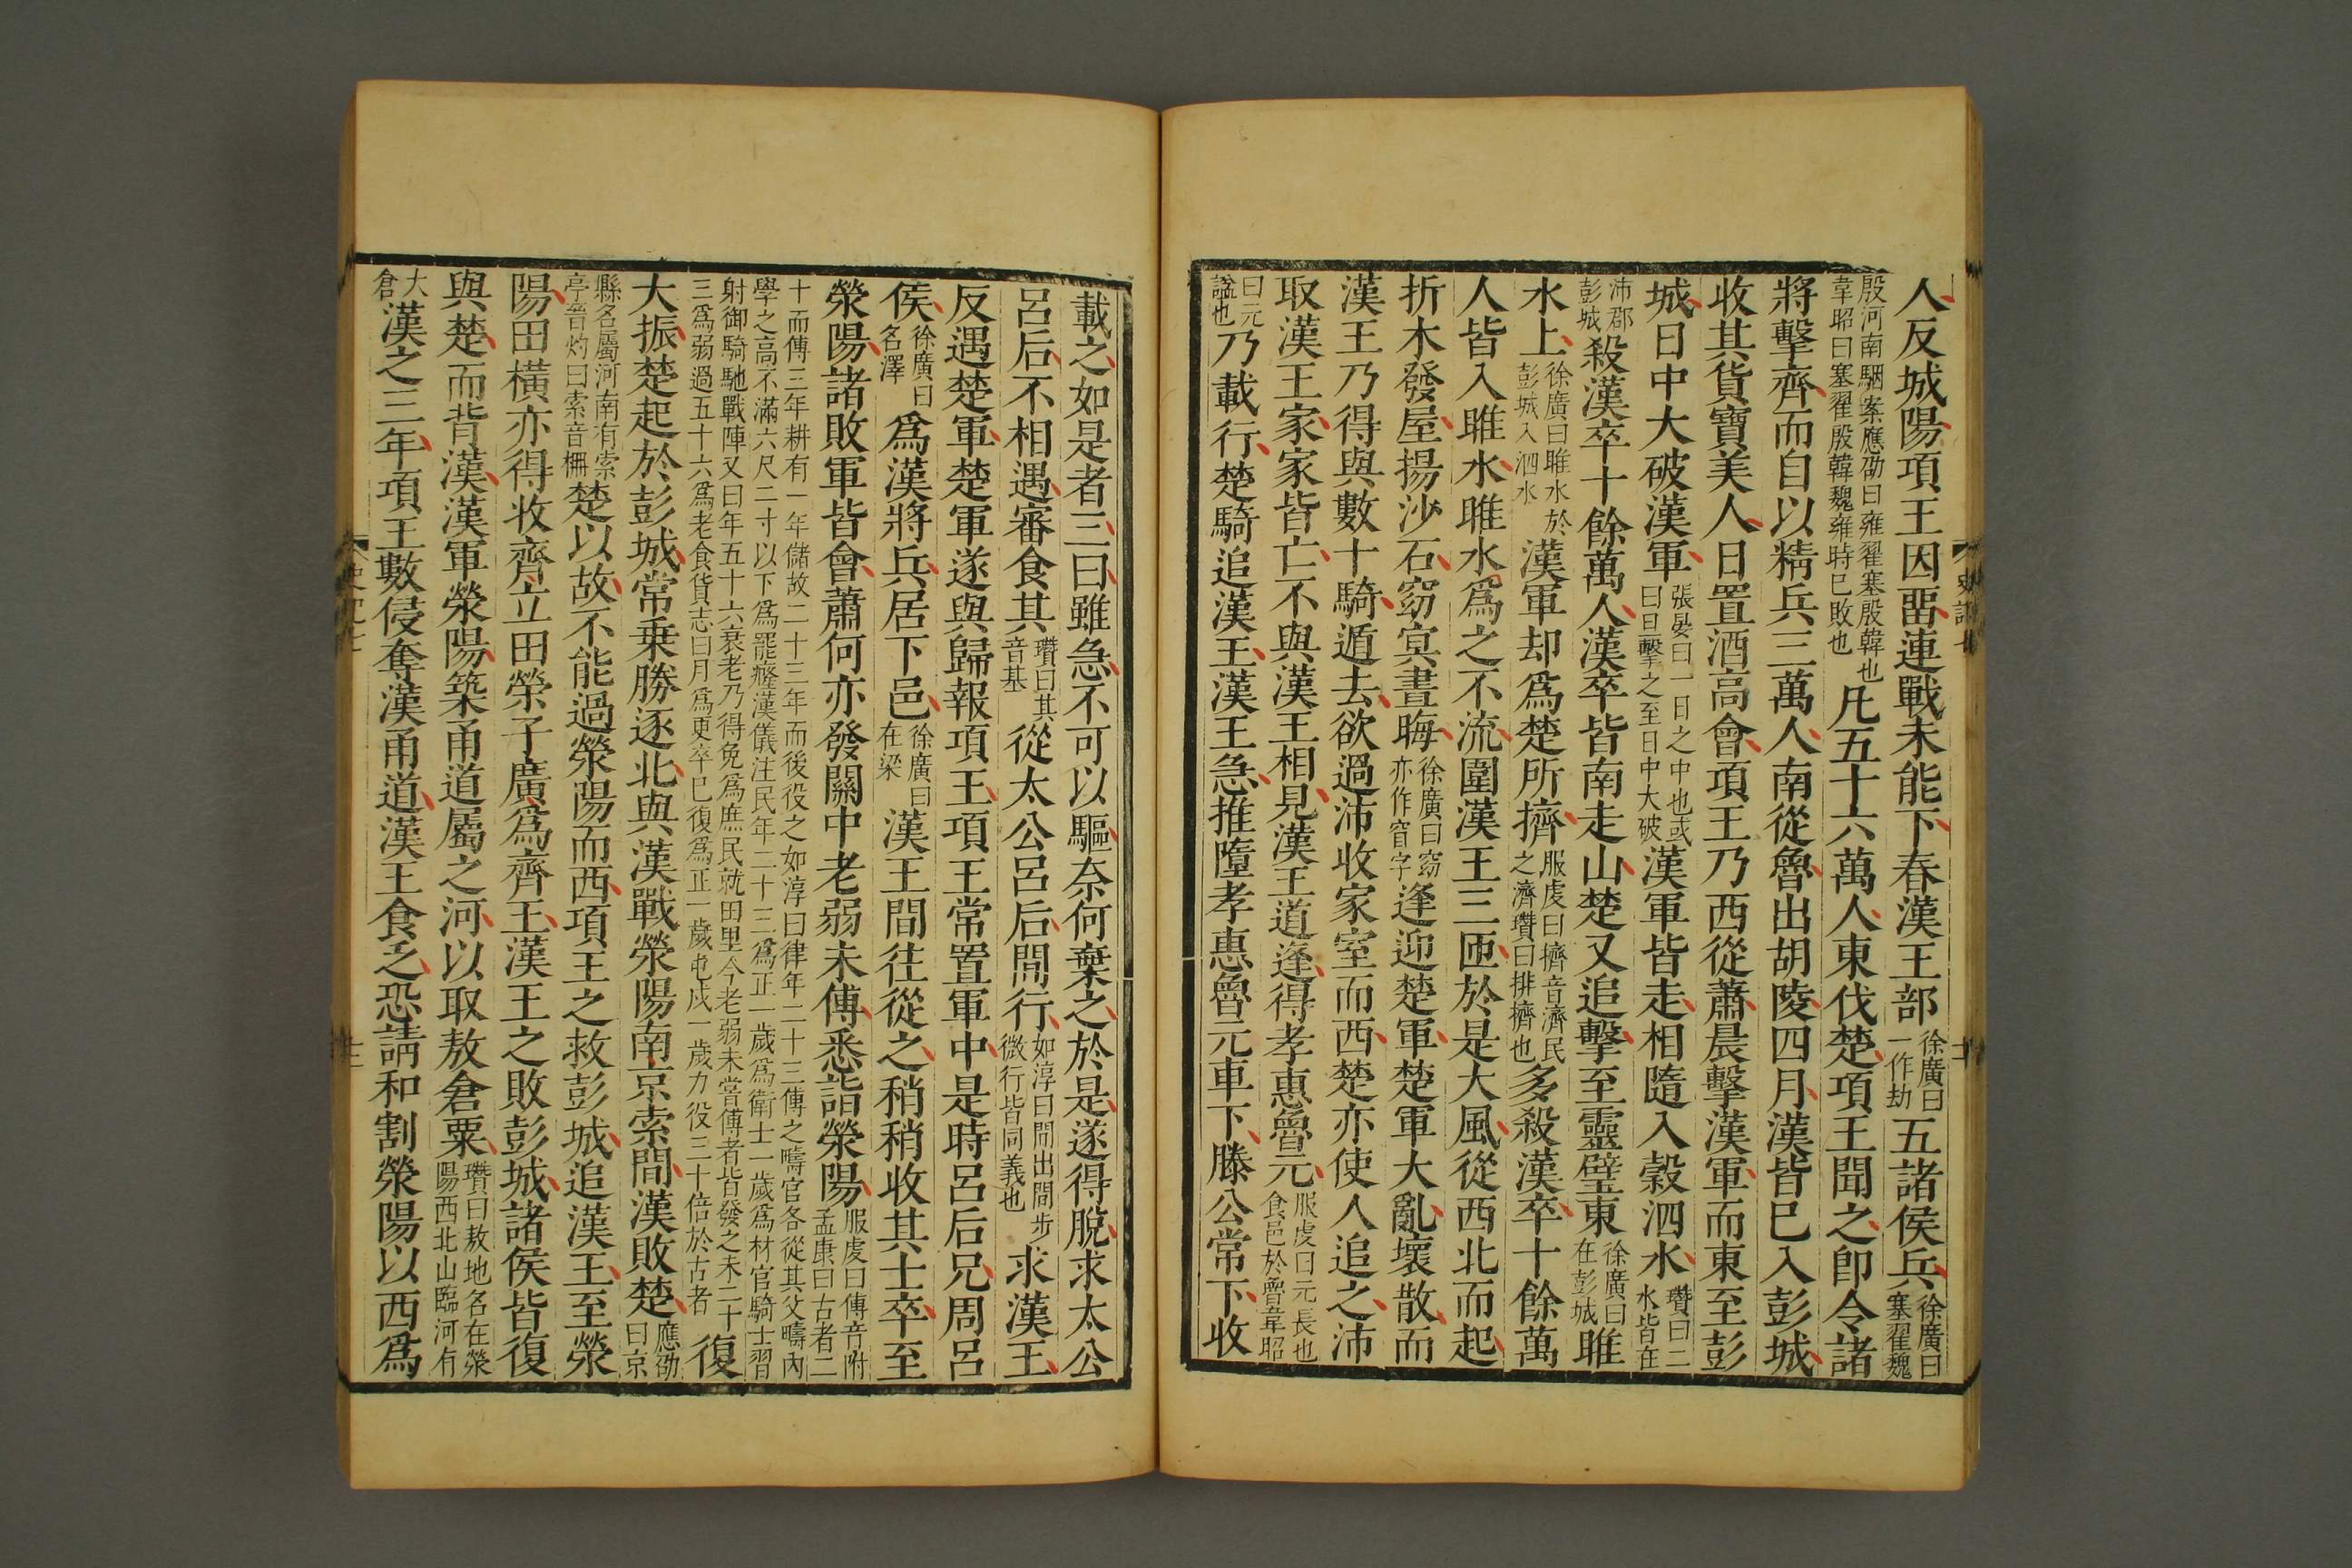 人反城陽項王因畱連戰未能下春漢王部徐廣曰一作劫五諸侯兵徐廣曰塞翟魏
殷河南駰案應劭曰雍翟塞殷韓也韋昭曰塞翟殷韓魏雍時已敗也凡五十六萬人東伐楚項王聞之即令諸
將擊齊而自以精兵三萬人南從魯出胡陵四月漢皆已入彭城
收其貨寶美人日置酒高會項王乃西從蕭晨擊漢軍而東至彭
城日中大破漢軍張晏曰一日之中也或曰旦擊之至日中大破漢軍皆走相隨入穀泗水瓚曰二水皆在
沛郡彭城殺漢卒十餘萬人漢卒皆南走山楚又追擊至靈壁東徐廣曰在彭城睢
水上徐廣曰睢水於彭城入泗水漢軍却爲楚所擠服虔曰擠音濟民之濟瓚曰排擠也多殺漢卒十餘萬
人皆入睢水睢水爲之不流圍漢王三匝於是大風從西北而起
折木發屋揚沙石窈冥晝晦徐廣曰窈亦作窅字逢迎楚軍楚軍大亂壞散而
漢王乃得與數十騎遁去欲過沛收家室而西楚亦使人追之沛
取漢王家家皆亡不與漢王相見漢王道逢得孝惠魯元服虔曰元長也食邑於魯韋昭
曰元謚也乃載行楚騎追漢王漢王急推墮孝惠魯元車下滕公常下收
載之如是者三曰雖急不可以驅奈何棄之於是遂得脫求太公
呂后不相遇審食其瓚曰其音基從太公呂后間行如淳曰間出間步微行皆同義也求漢王
反遇楚軍楚軍遂與歸報項王項王常置軍中是時呂后兄周呂
侯徐廣曰名澤爲漢將兵居下邑徐廣曰在梁漢王間往從之稍稍收其士卒至
滎陽諸敗軍皆會蕭何亦發關中老弱未傅悉詣滎陽服虔曰傅音附孟康曰古者二
十而傅三年耕有一年儲故二十三年而後役之如淳曰律年二十三傅之疇官各從其父疇內學之高不滿六尺二寸以下爲罷癃漢儀注民年二十三爲正一歲爲衛士一歲爲材官騎士習
射御騎馳戰陣又曰年五十六衰老乃得免爲庶民就田里今老弱未嘗傅者皆發之未二十三爲弱過五十六爲老食貨志曰月爲更卒已復爲正一歲屯戍一歲力役三十倍於古者復
大振楚起於彭城常乗勝逐北與漢戰滎陽南京索間漢敗楚應劭曰京
縣名屬河南有索亭晉灼曰索音柵楚以故不能過滎陽而西項王之救彭城追漢王至滎
陽田橫亦得收齊立田榮子廣爲齊王漢王之敗彭城諸侯皆復
與楚而背漢漢軍滎陽築甬道屬之河以取敖倉粟瓚曰敖地名在滎陽西北山臨河有
大倉漢之三年項王數侵奪漢甬道漢王食乏恐請和割滎陽以西爲